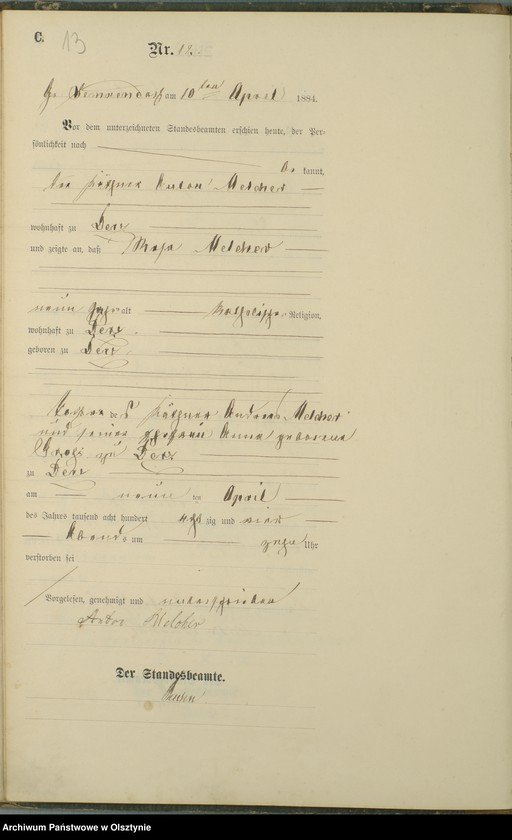 C. 13
Nr. 12.
am 10 ten April 1884.
Vor dem unterzeichneten Standesbeamten erschien heute, der Per-
sönlichkeit nach
be kannt,
der Käthner Anton Melcher
wohnhaft zu Derz
und zeigte an, daß Rosa Melcher
neun Jahr alt katholischer Religion,
wohnhaft zu Derz
geboren zu Derz
Tochter des Käthner Andreas Melcher
und seiner Ehefrau Anna geborene
zu Derz
zu Derz
am neun ten April
des Jahres tausend acht hundert acht zig und vier
Abends um zehn Uhr
verstorben sei
Vorgelesen, genehmigt und unterschrieben
Anton Melcher
Der Standesbeamte.
Archiwum Państwowe w Olsztynie